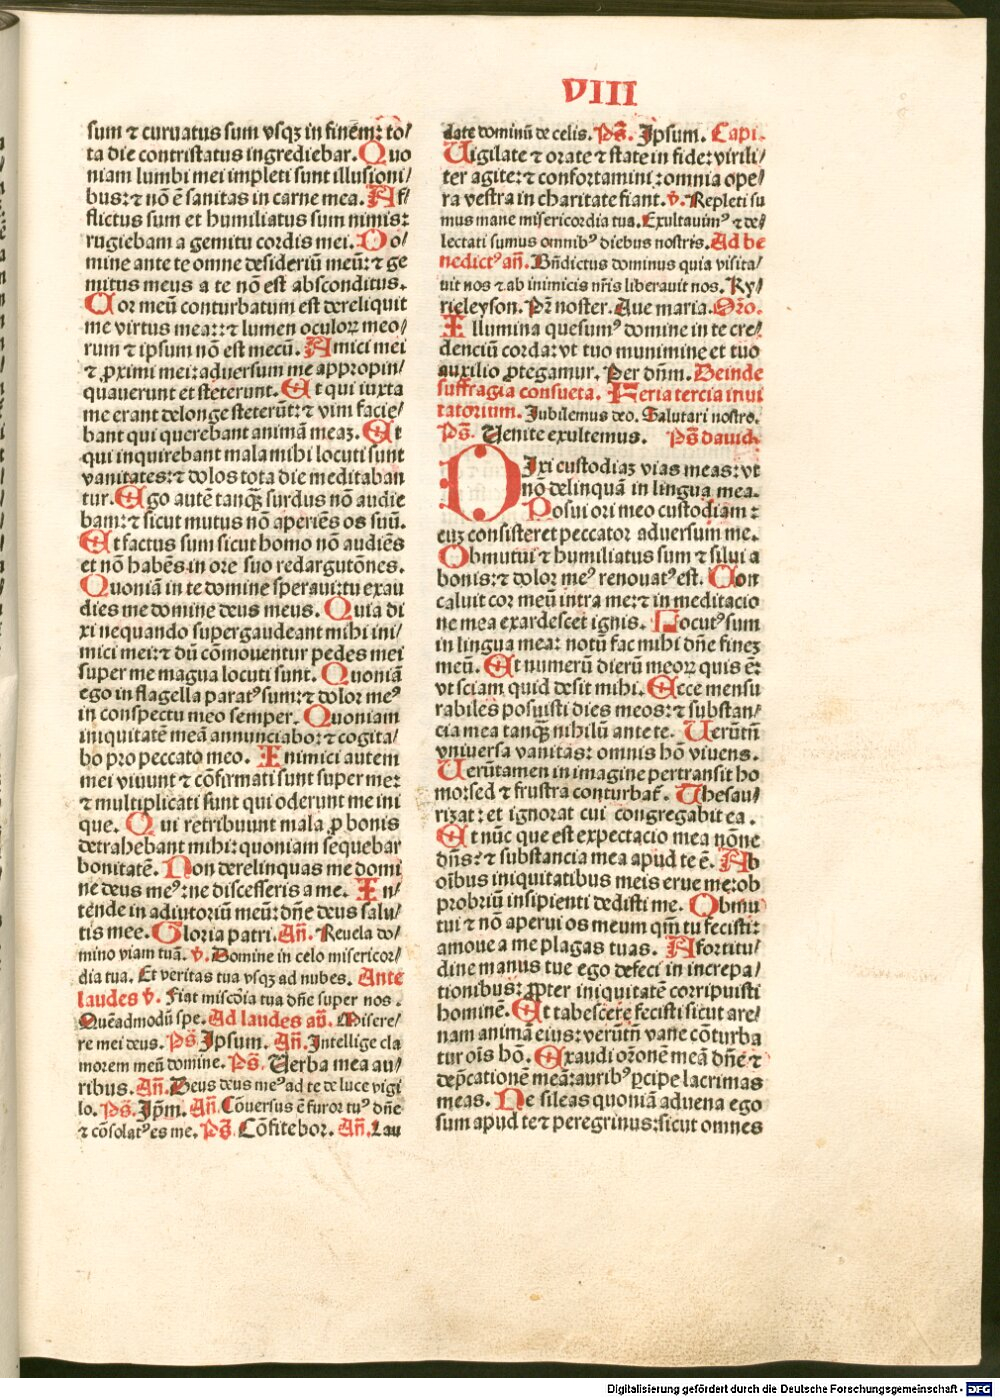 VIII
sum ⁊ curuatus sum vsqꝫ in finēm: to/
ta die contristatus ingrediebar. Quo
niam lumbi mei impleti sunt illusioni/
bus: ⁊ nō ē sanitas in carne mea. Af/
flictus sum et humiliatus sum nimis:
rugiebam a gemitu cordis mei. Do/
mine ante te omne desideriū meū: ⁊ ge
mitus meus a te nō est absconditus.
Cor meū conturbatum est dereliquit
me virtus mea: ⁊ lumen oculoꝝ meo/
rum ⁊ ipsum nō est mecū. Amici mei
⁊ ꝓximi mei: aduersum me appropin/
quauerunt et steterunt. Et qui iuxta
me erant delonge steterūt: ⁊ vim facie/
bant qui querebant animā meaꝫ. Et
qui inquirebant mala mihi locuti sunt
vanitates: ⁊ dolos tota die meditaban
tur. Ego autē tanqꝫ surdus nō audie
bam: ⁊ sicut mutus nō aperiēs os suū.
Et factus sum sicut homo nō audiēs
et nō habēs in ore suo redargutōnes.
Quoniā in te domine speraui: tu exau
dies me domine deus meus. Quia di
xi nequando supergaudeant mihi ini/
mici mei: ⁊ dū cōmouentur pedes mei
super me magua locuti sunt. Quoniā
ego in flagella paratꝰ sum: ⁊ dolor meꝰ
in conspectu meo semper. Quoniam
iniquitatē meā annunciabo: ⁊ cogita/
bo pro peccato meo. Inimici autem
mei viuunt ⁊ cōfirmati sunt super me:
⁊ multiplicati sunt qui oderunt me ini
que. Qui retribuunt mala ꝓ bonis
detrahebant mihi: quoniam sequebar
bonitatē. Non derelinquas me domi
ne deus meꝰ: ne discesseris a me. In/
tende in adiutoriū meū: dn̄e deus salu/
tis mee. Gloria patri. An̄. Reuela do/
mino viam tuā. v̄. Domine in celo misericor/
dia tua. Et veritas tua vsqꝫ ad nubes. Ante
laudes v̄. Fiat miscōia tua dn̄e super nos.
Quēadmodū spe. Ad laudes an̄. Misere/
re mei deus. Ps̄ Ipsum. An̄. Intellige cla
morem meū domine. Ps̄. Verba mea au/
ribus. An̄. Deus deus meꝰ ad te de luce vigi
lo. Ps̄. Ip̄m. An̄ Cōuersus ē furor tuꝰ dn̄e
⁊ cōsolatꝰ es me. Ps̄. Cōfitebor. An̄. Lau
date dominū de celis. Ps̄. Ipsum. Capi.
Uigilate ⁊ orate ⁊ state in fide: virili/
ter agite: ⁊ confortamini: omnia ope/
ra vestra in charitate fiant. v̄. Repleti su
mus mane misericordia tua. Exultauimꝰ ⁊ de/
lectati sumus omnibꝰ diebus nostris. Ad be
nedictꝰ an̄. Bn̄dictus dominus quia visita/
uit nos ⁊ ab inimicis nr̄is liberauit nos. Ky/
rieleyson. Pr̄ noster. Aue maria. Oro̅.
Illumina quesumꝰ domine in te cre/
denciū corda: vt tuo munimine et tuo
auxilio ꝓtegamur. Per dn̄m. Deinde
suffragia consueta. Feria tercia inui
tatorium. Iubilemus deo. Salutari nostro.
Ps̄. Uenite exultemus. Ps̄ dauid.
Dixi custodiaꝫ vias meas: vt
nō delinquā in lingua mea.
Posui ori meo custodiam:
cuꝫ consisteret peccator aduersum me.
Obmutui ⁊ humiliatus sum ⁊ silui a
bonis: ⁊ dolor meꝰ renouatꝰ est. Con
caluit cor meū intra me: ⁊ in meditacio
ne mea exardescet ignis. Locutꝰ sum
in lingua mea: notū fac mihi dn̄e fineꝫ
meū. Et numerū dierū meoꝝ quis ē:
vt sciam quid desit mihi. Ecce mensu
rabiles posuisti dies meos: ⁊ substan/
cia mea tanqꝫ nihilū ante te. Uerūtn̄
vniuersa vanitas: omnis hō viuens.
Uerūtamen in imagine pertransit ho
mo: sed ⁊ frustra conturbat᷑. Thesau/
rizat: et ignorat cui congregabit ea.
Et nūc que est expectacio mea nōne
dn̄s: ⁊ substancia mea apud te ē. Ab
oībus iniquitatibus meis erue me: ob
probriū insipienti dedisti me. Obmu
tui ⁊ nō aperui os meum qm̄ tu fecisti:
amoue a me plagas tuas. A fortitu/
dine manus tue ego defeci in increpa/
tionibus: ꝓpter iniquitatē corripuisti
hominē. Et tabescere fecisti sicut are/
nam animā eius: verūtn̄ vane cōturba
tur oīs hō. Exaudi orōnē meā dn̄e ⁊
dep̄cationē meā: auribꝰ p̱cipe lacrimas
meas. Ne sileas quoniā aduena ego
sum apud te ⁊ peregrinus: sicut omnes
Digitalisierung gefördert durch die Deutsche Forschungsgemeinschaft - DFG